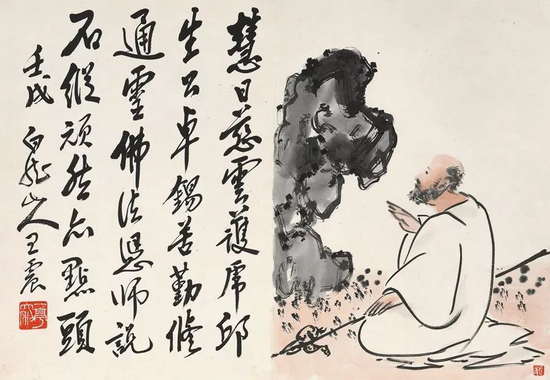 慧日慈雲護虎邱
生公卓錫苦勤修
通靈佛法憑師説
石縱頑然亦點頭
壬戌 白龍山人王震